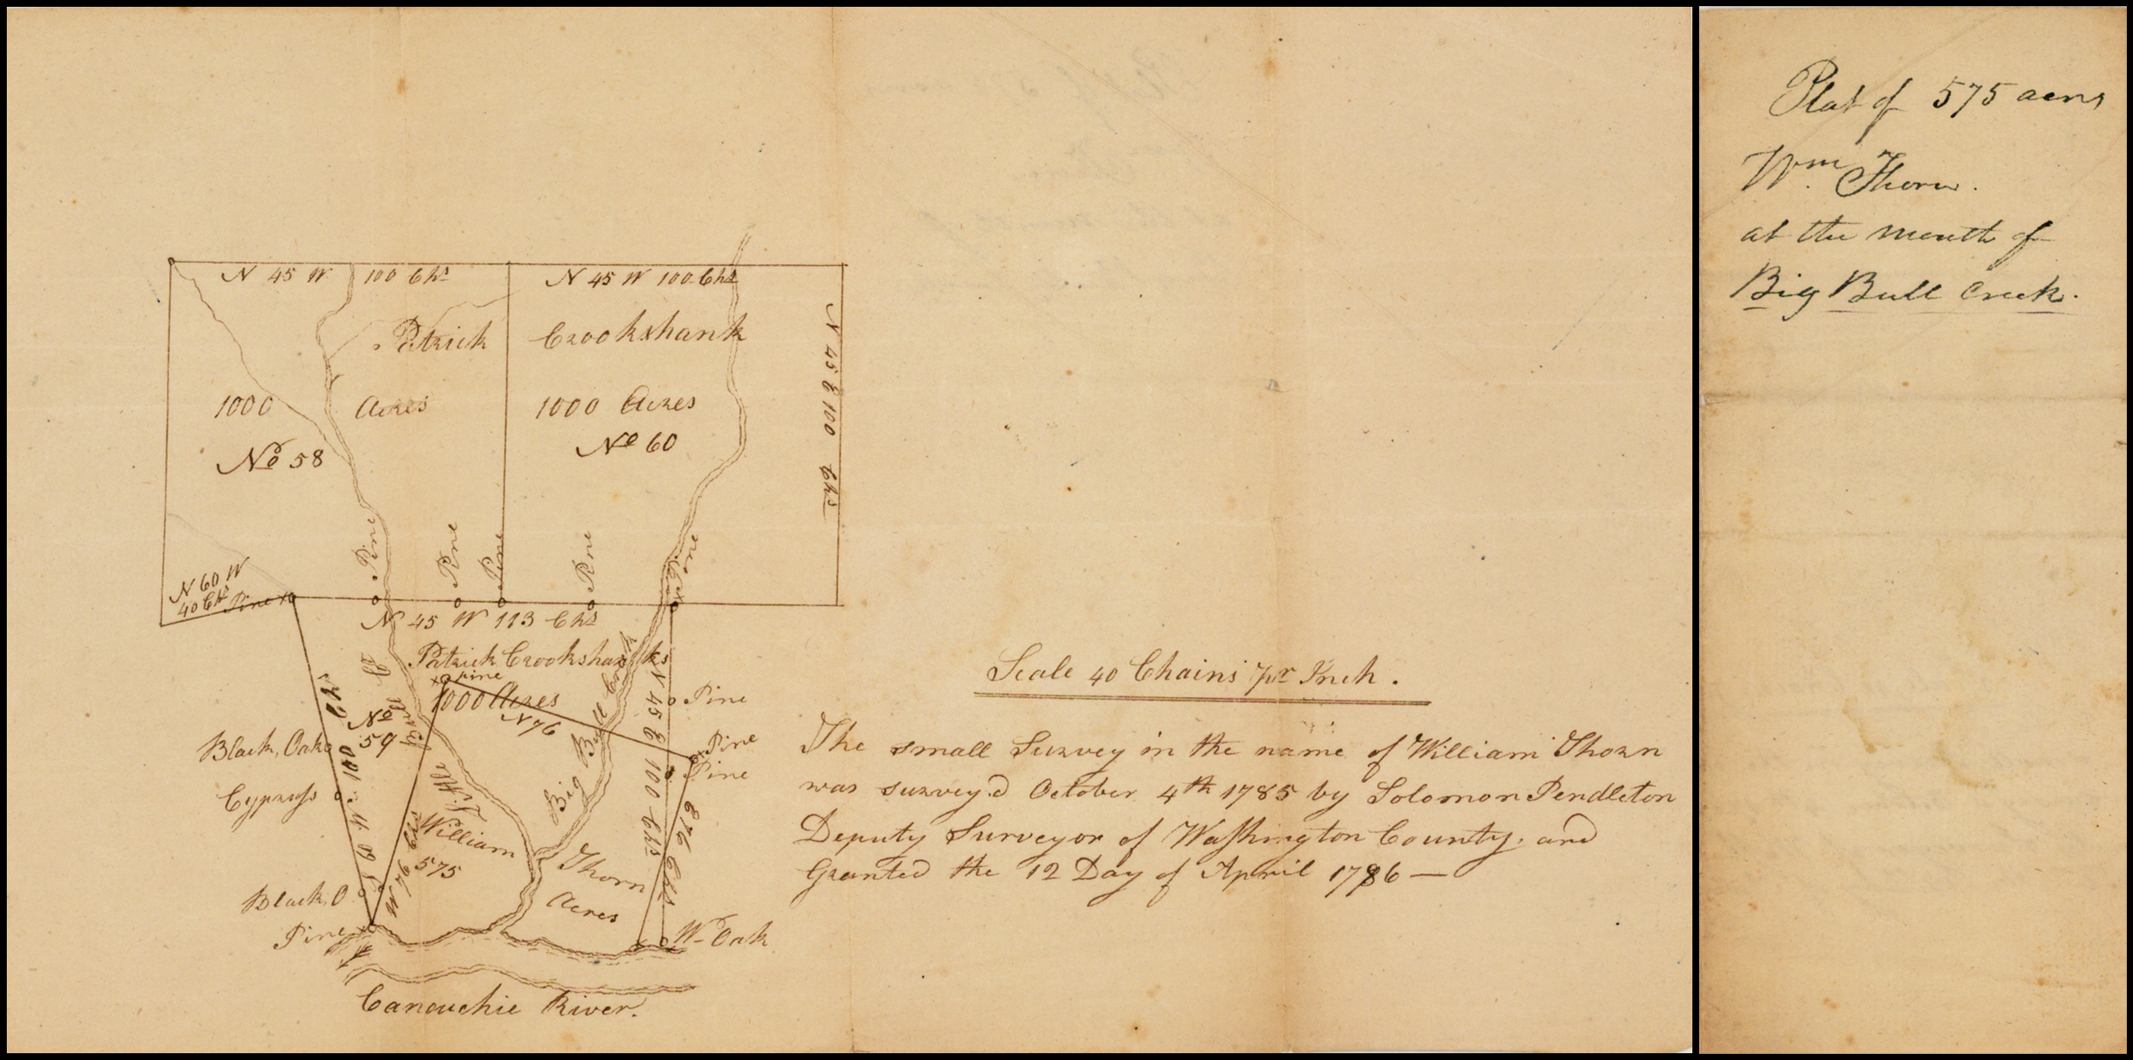 N 45 W 100 Chs
N 45 W 100 Chs
Patrick Crookshank
N 45 E 100 Chs
1000 Acres
1000 Acres
No 58
No 60
Pine
Pine
Pine
Pine
Pine
N 60 W
40 Chs Pine
N 45 W 113 Chs
Patrick Crookshanks
pine
1000 Acres
N 76
No
59
N 45 E 100 Chs
Pine
Pine
Pine
Black Oak
Cypress
100 Chs
Big Bull Creek
William Thorn
575 Acres
N 76 Chs
876 Chs
Black O
Pine
W Oak
Canouchie River.
Scale 40 Chains pr Inch.
The small Survey in the name of William Thorn
was survey'd October 4th 1785 by Solomon Pendleton
Deputy Surveyor of Washington County, and
Granted the 12 Day of April 1786 —
Plat of 575 acres
Wm Thorn.
at the mouth of
Big Bull Creek.